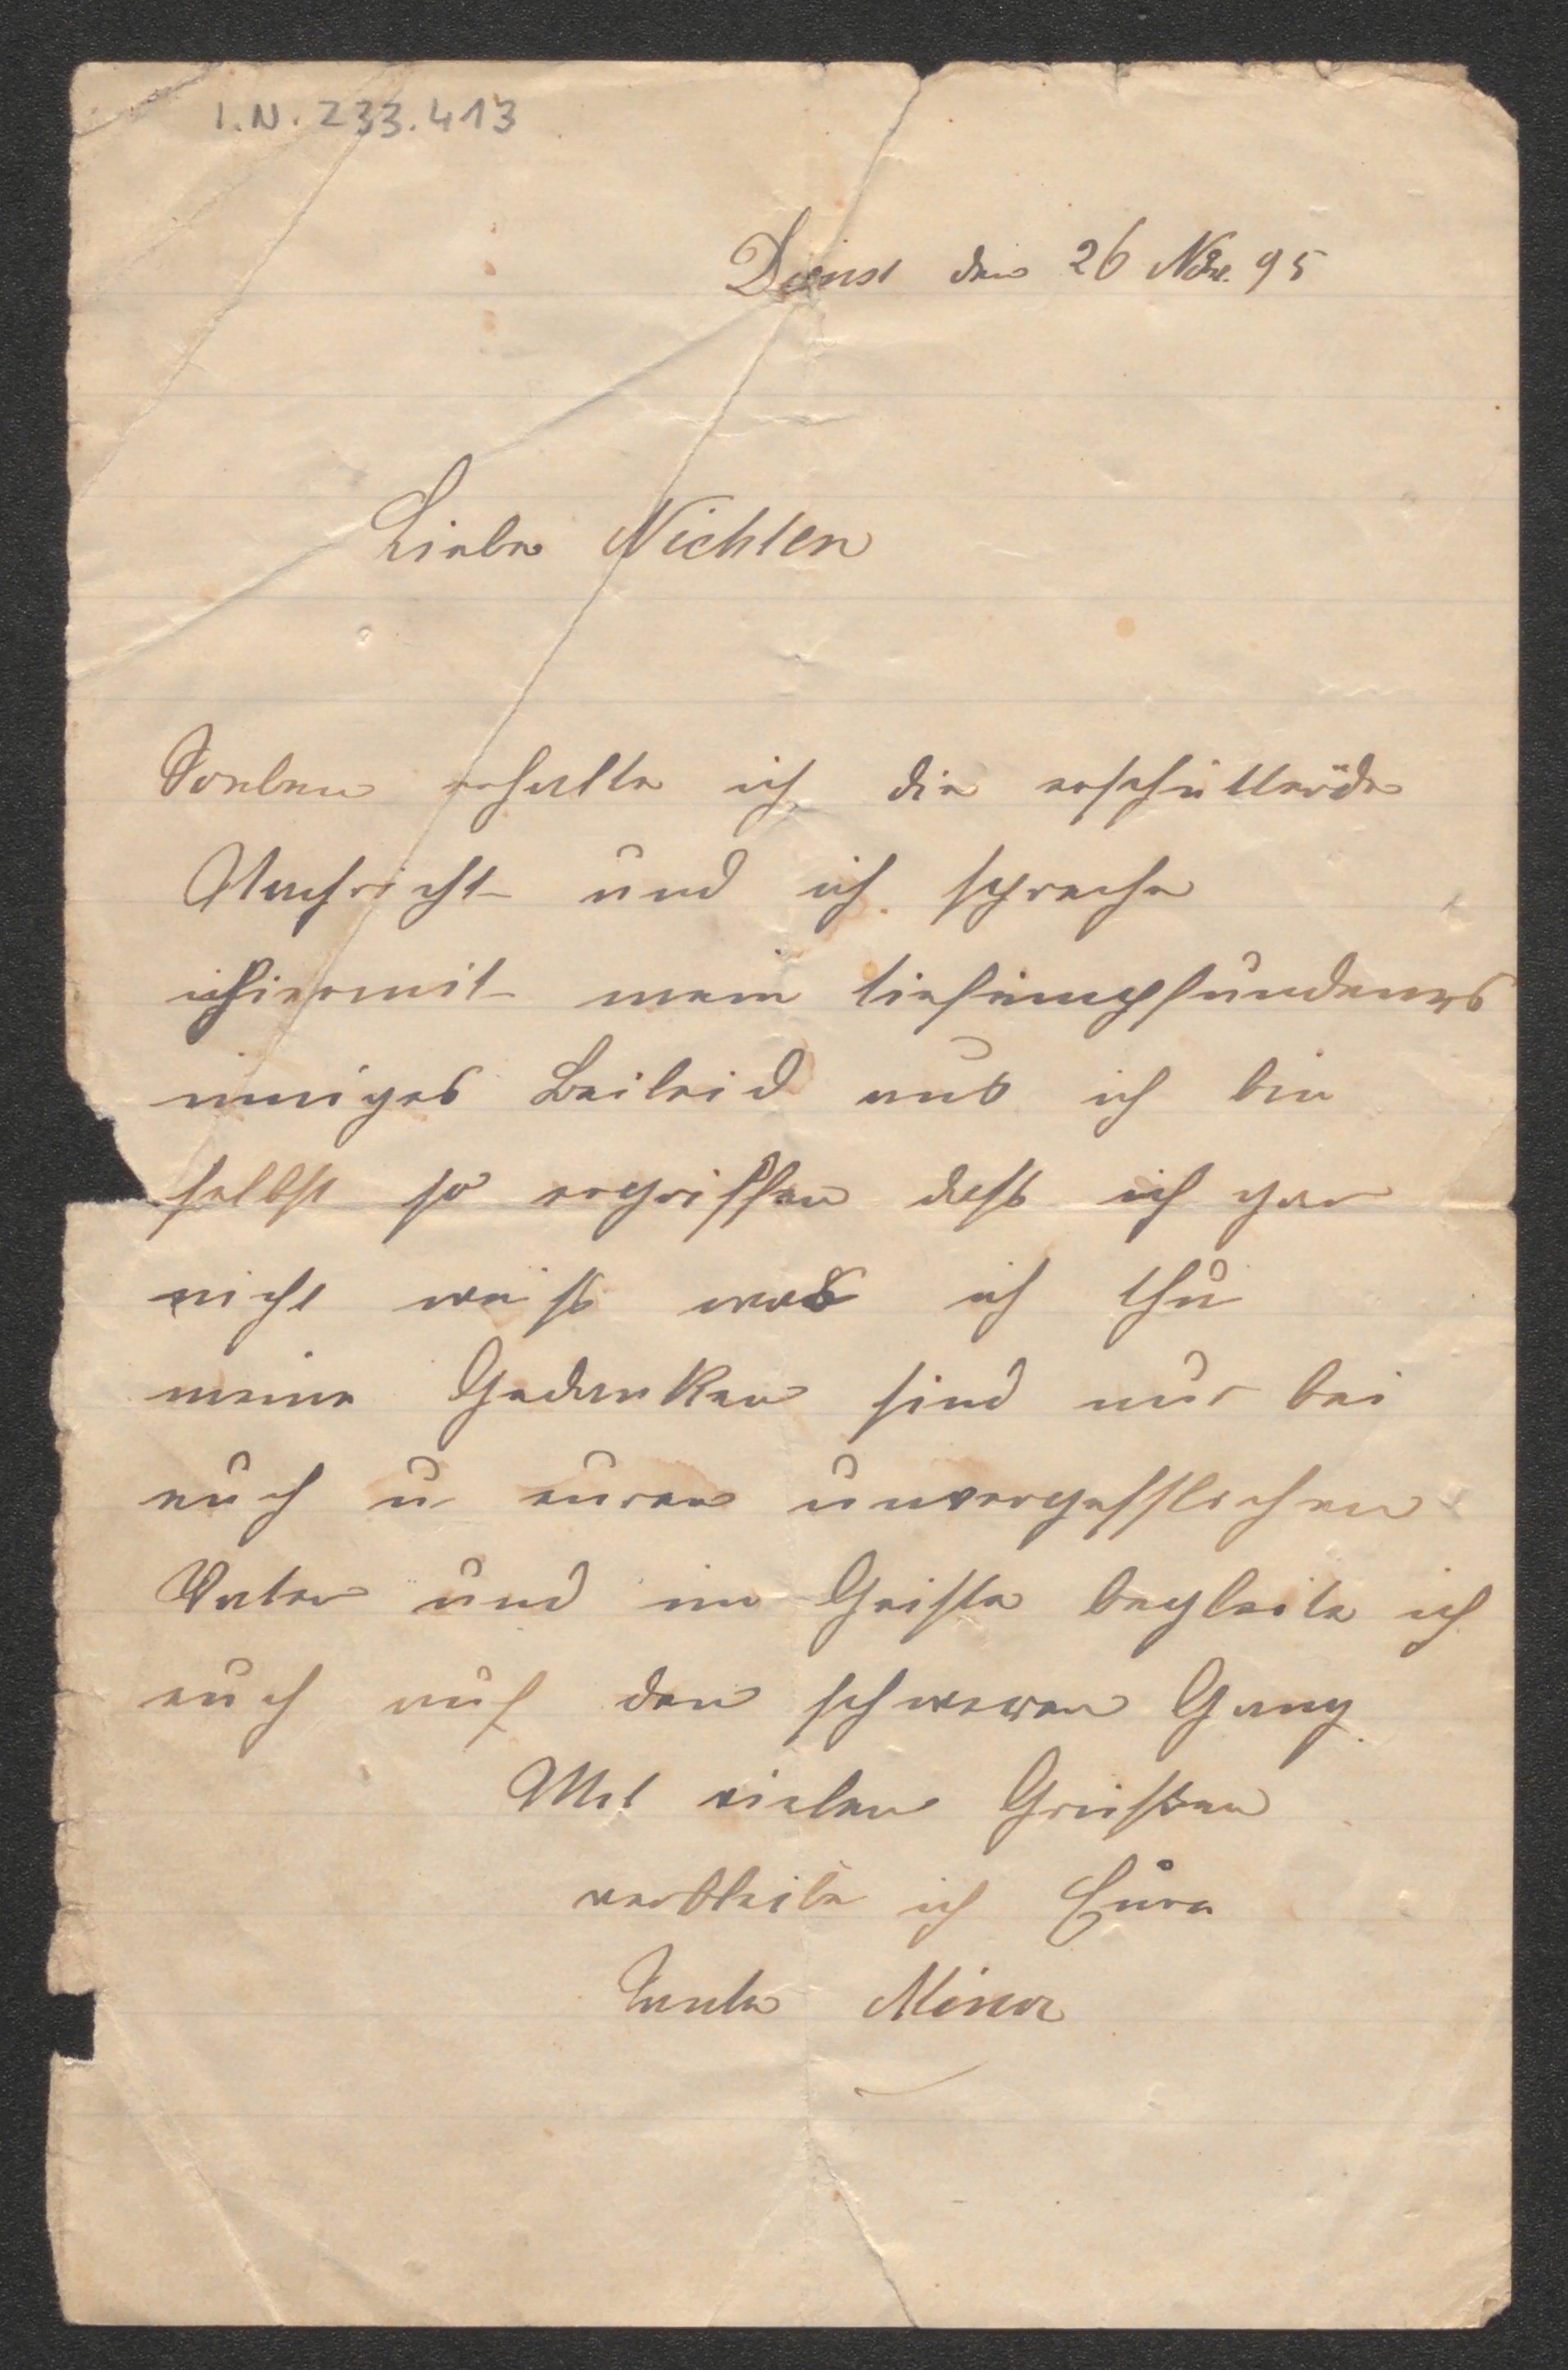 I.N. 233.413
den 26 Nov. 95
Liebe Nichten
Soeben erhalte ich die erschütternde
Nachricht und ich spreche
hiermit mein tiefempfundenes
inniges Beileid aus ich bin
selbst so ergriffen daß ich gar
nicht weiß was ich thu
meine Gedanken sind nur bei
euch u euren unvergesslichen
Vater und im Geiste begleite ich
euch auf den schweren Gang
Mit vielen Grüßen
verbleibe ich Eure
Tante Mina